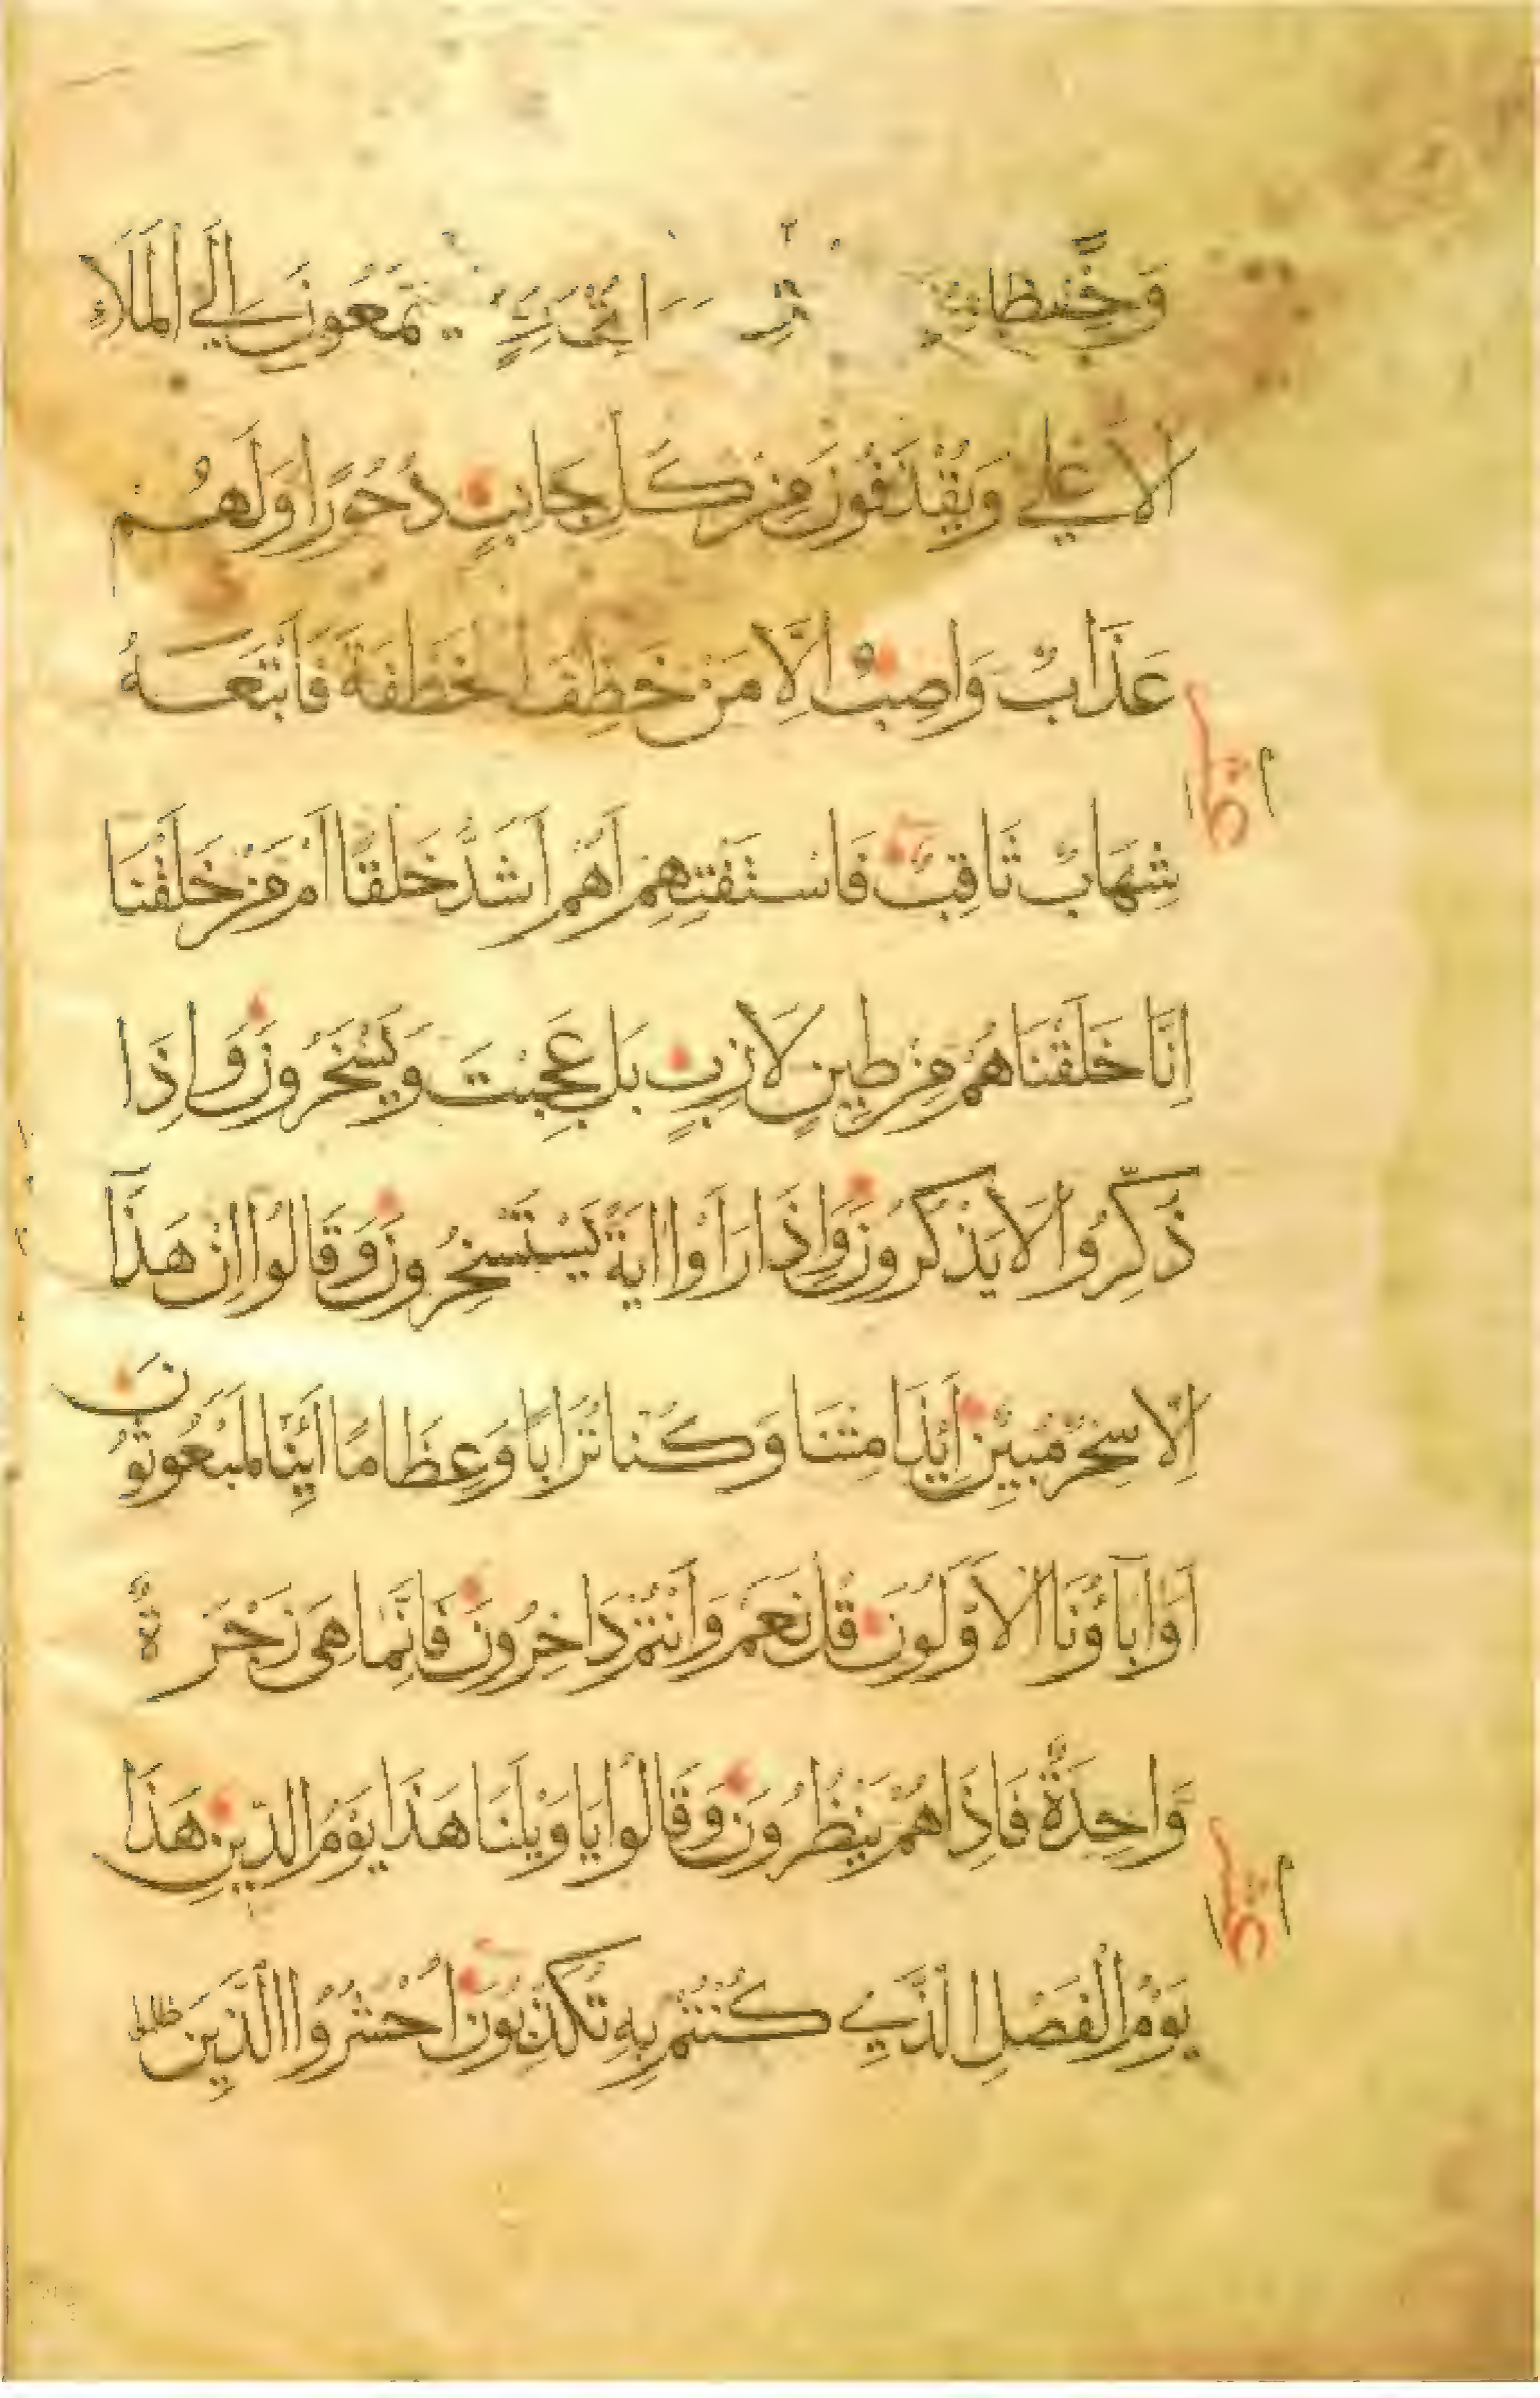 وَحِفْظًا يَسَّمَّعُونَ اِلَي الْمَلَاءِ
الْاَعْلي وَيُقْذَفُونَ مِنْ كُلِّ جَانِبٍ دُحُورًا وَلَهُمْ
عَذَابٌ وَاصِبٌ اِلَّا مَنْ خَطِفَ الْخَطْفَةَ فَاَتْبَعَهُ
شِهَابٌ ثَاقِبٌ فَاسْتَفْتِهِمْ اَهُمْ اَشَدُّ خَلْقًا اَمْ مَنْ خَلَقْنَا
اِنَّا خَلَقْنَاهُمْ مِنْ طِينٍ لَازِبٍ بَلْ عَجِبْتَ وَيَسْخَرُونَ وَاِذَا
ذُكِّرُوا لَا يَذْكُرُونَ وَاِذَا رَاَوْا ايَةً يَسْتَسْخِرُونَ وَقَالُوا اِنْ هَذَا
اِلَّا سِحْرٌ مُبِينٌ اَئِذَا مِتْنَا وَكُنَّا تُرَابًا وَعِظَامًا اَئِنَّا لَمَبْعُوثُونَ
اَوَابَآؤُنَا الْاَوَّلُونَ قُلْ نَعَمْ وَاَنْتُمْ دَاخِرُونَ فَاِنَّمَا هِيَ زَجْرَةٌ
وَاحِدَةٌ فَاِذَا هُمْ يَنْظُرُونَ وَقَالُوا يَا وَيْلَنَا هَذَا يَوْمُ الدِّينِ هَذَا
يَوْمُ الْفَصْلِ الَّذِي كُنْتُمْ بِهِ تُكَذِّبُونَ اُحْشُرُوا الَّذِينَ